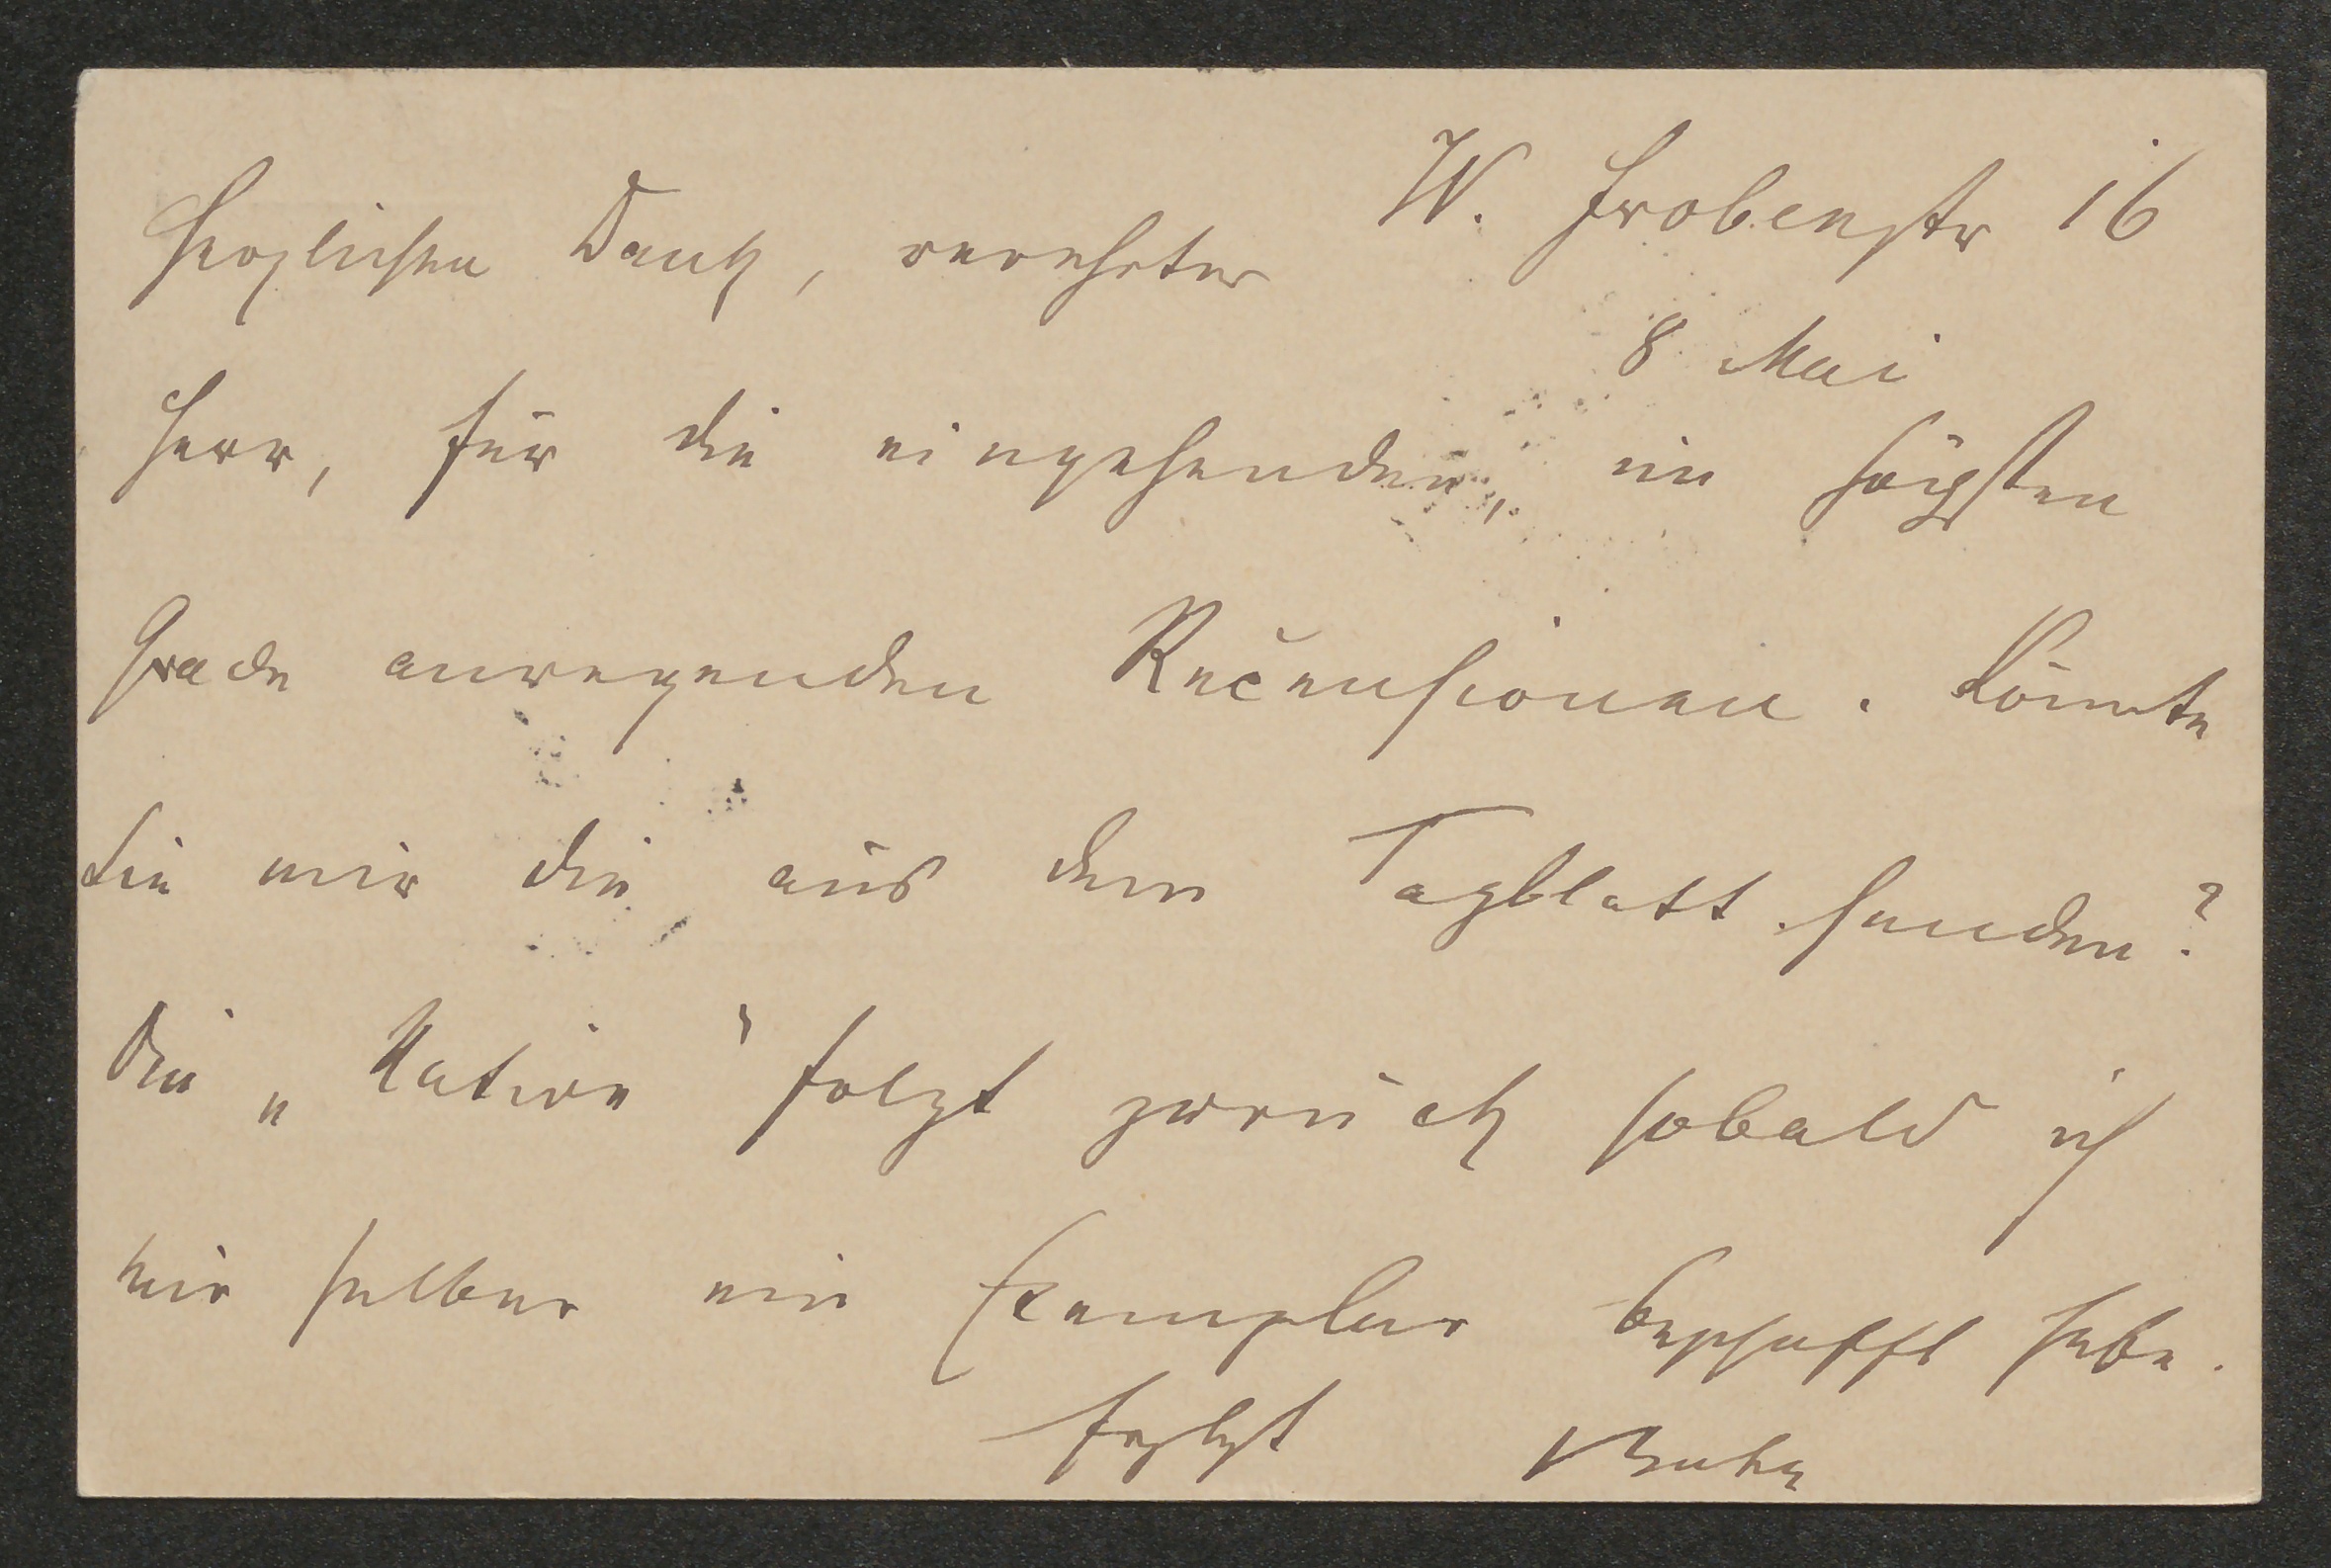 W. Frobenstr 16
Herzlichen Dank, verehrter
8 Mai
Herr, für die eingehenden, im höchsten
Grade anregenden Recensionen. Könnte
Sie mir die aus dem Tagblatt senden?
Die „Nation" folgt zurück sobald ich
mir selber ein Exemplar beschafft habe.